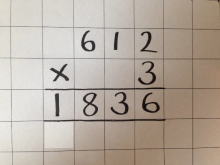 612
× 3
1836